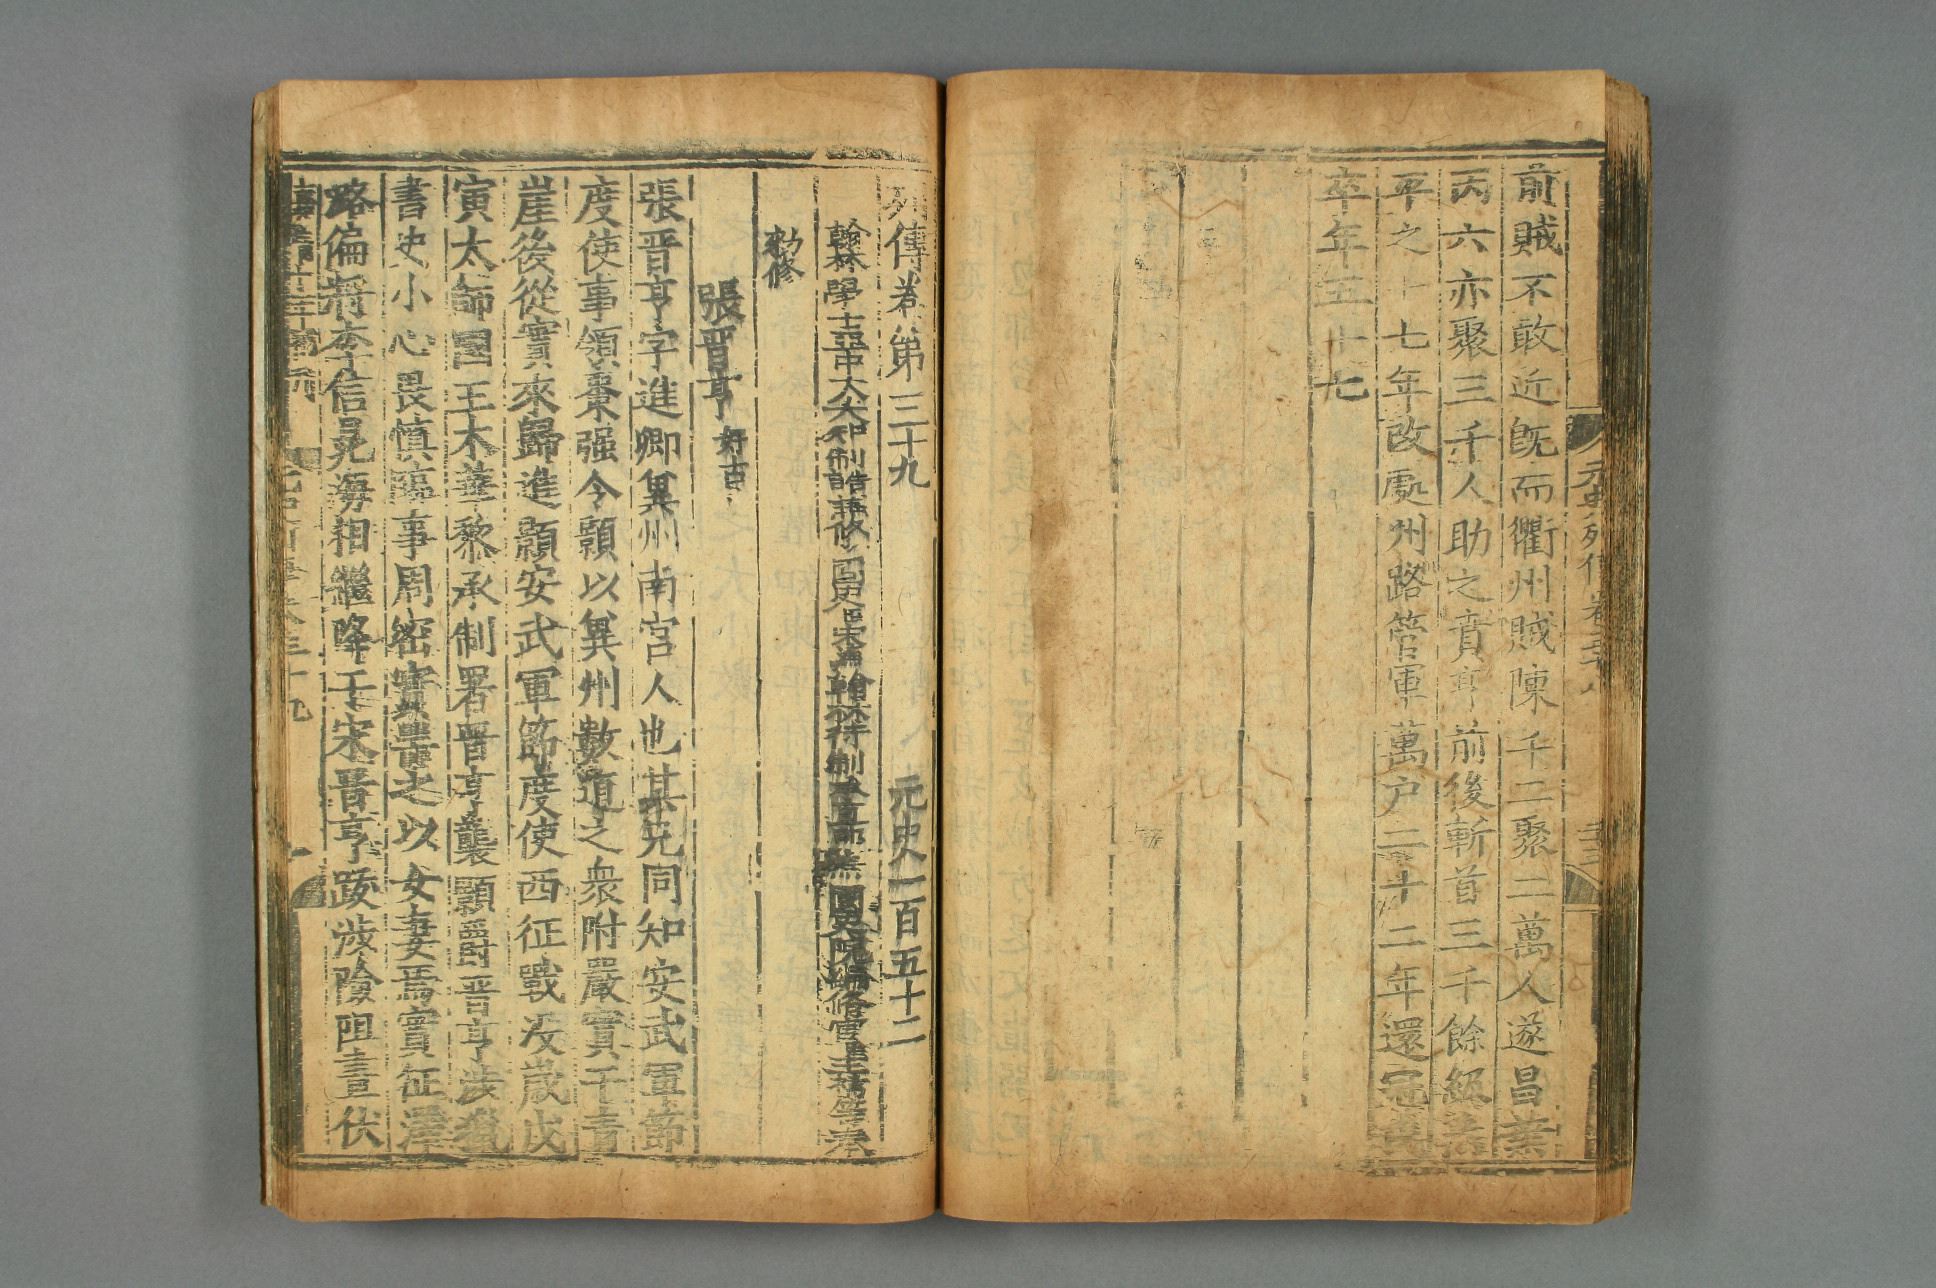 前賊不敢近旣而衢州賊陳千二聚二萬人遂昌葉
丙六亦聚三千人助之賁亨前後斬首三千餘級
平之十七年改處州路管軍萬户二十二年還冠
卒年五十七
元史列傳卷三十八
列傳卷第三十九 元史一百五十二
翰林學士亞中大夫知制誥兼修國史臣宋濂翰林待制承直郎兼國史院編修官臣王禕等奉
勑修
張晋亨 好古
張晋亨字進卿兾州南宫人也其兄同知安武軍節
度使事領棗强令顥以兾州數道之衆附嚴實于青
崖後從實來歸進顥安武軍節度使西征戰没歲戊
寅太師國王木華黎承制署晋亨襲顥爵晋亨涉獵
書史小心畏慎臨事周密實器之以女妻焉實征澤
潞偏將李信晁海相繼降于宋晋亨跋涉險阻晝伏